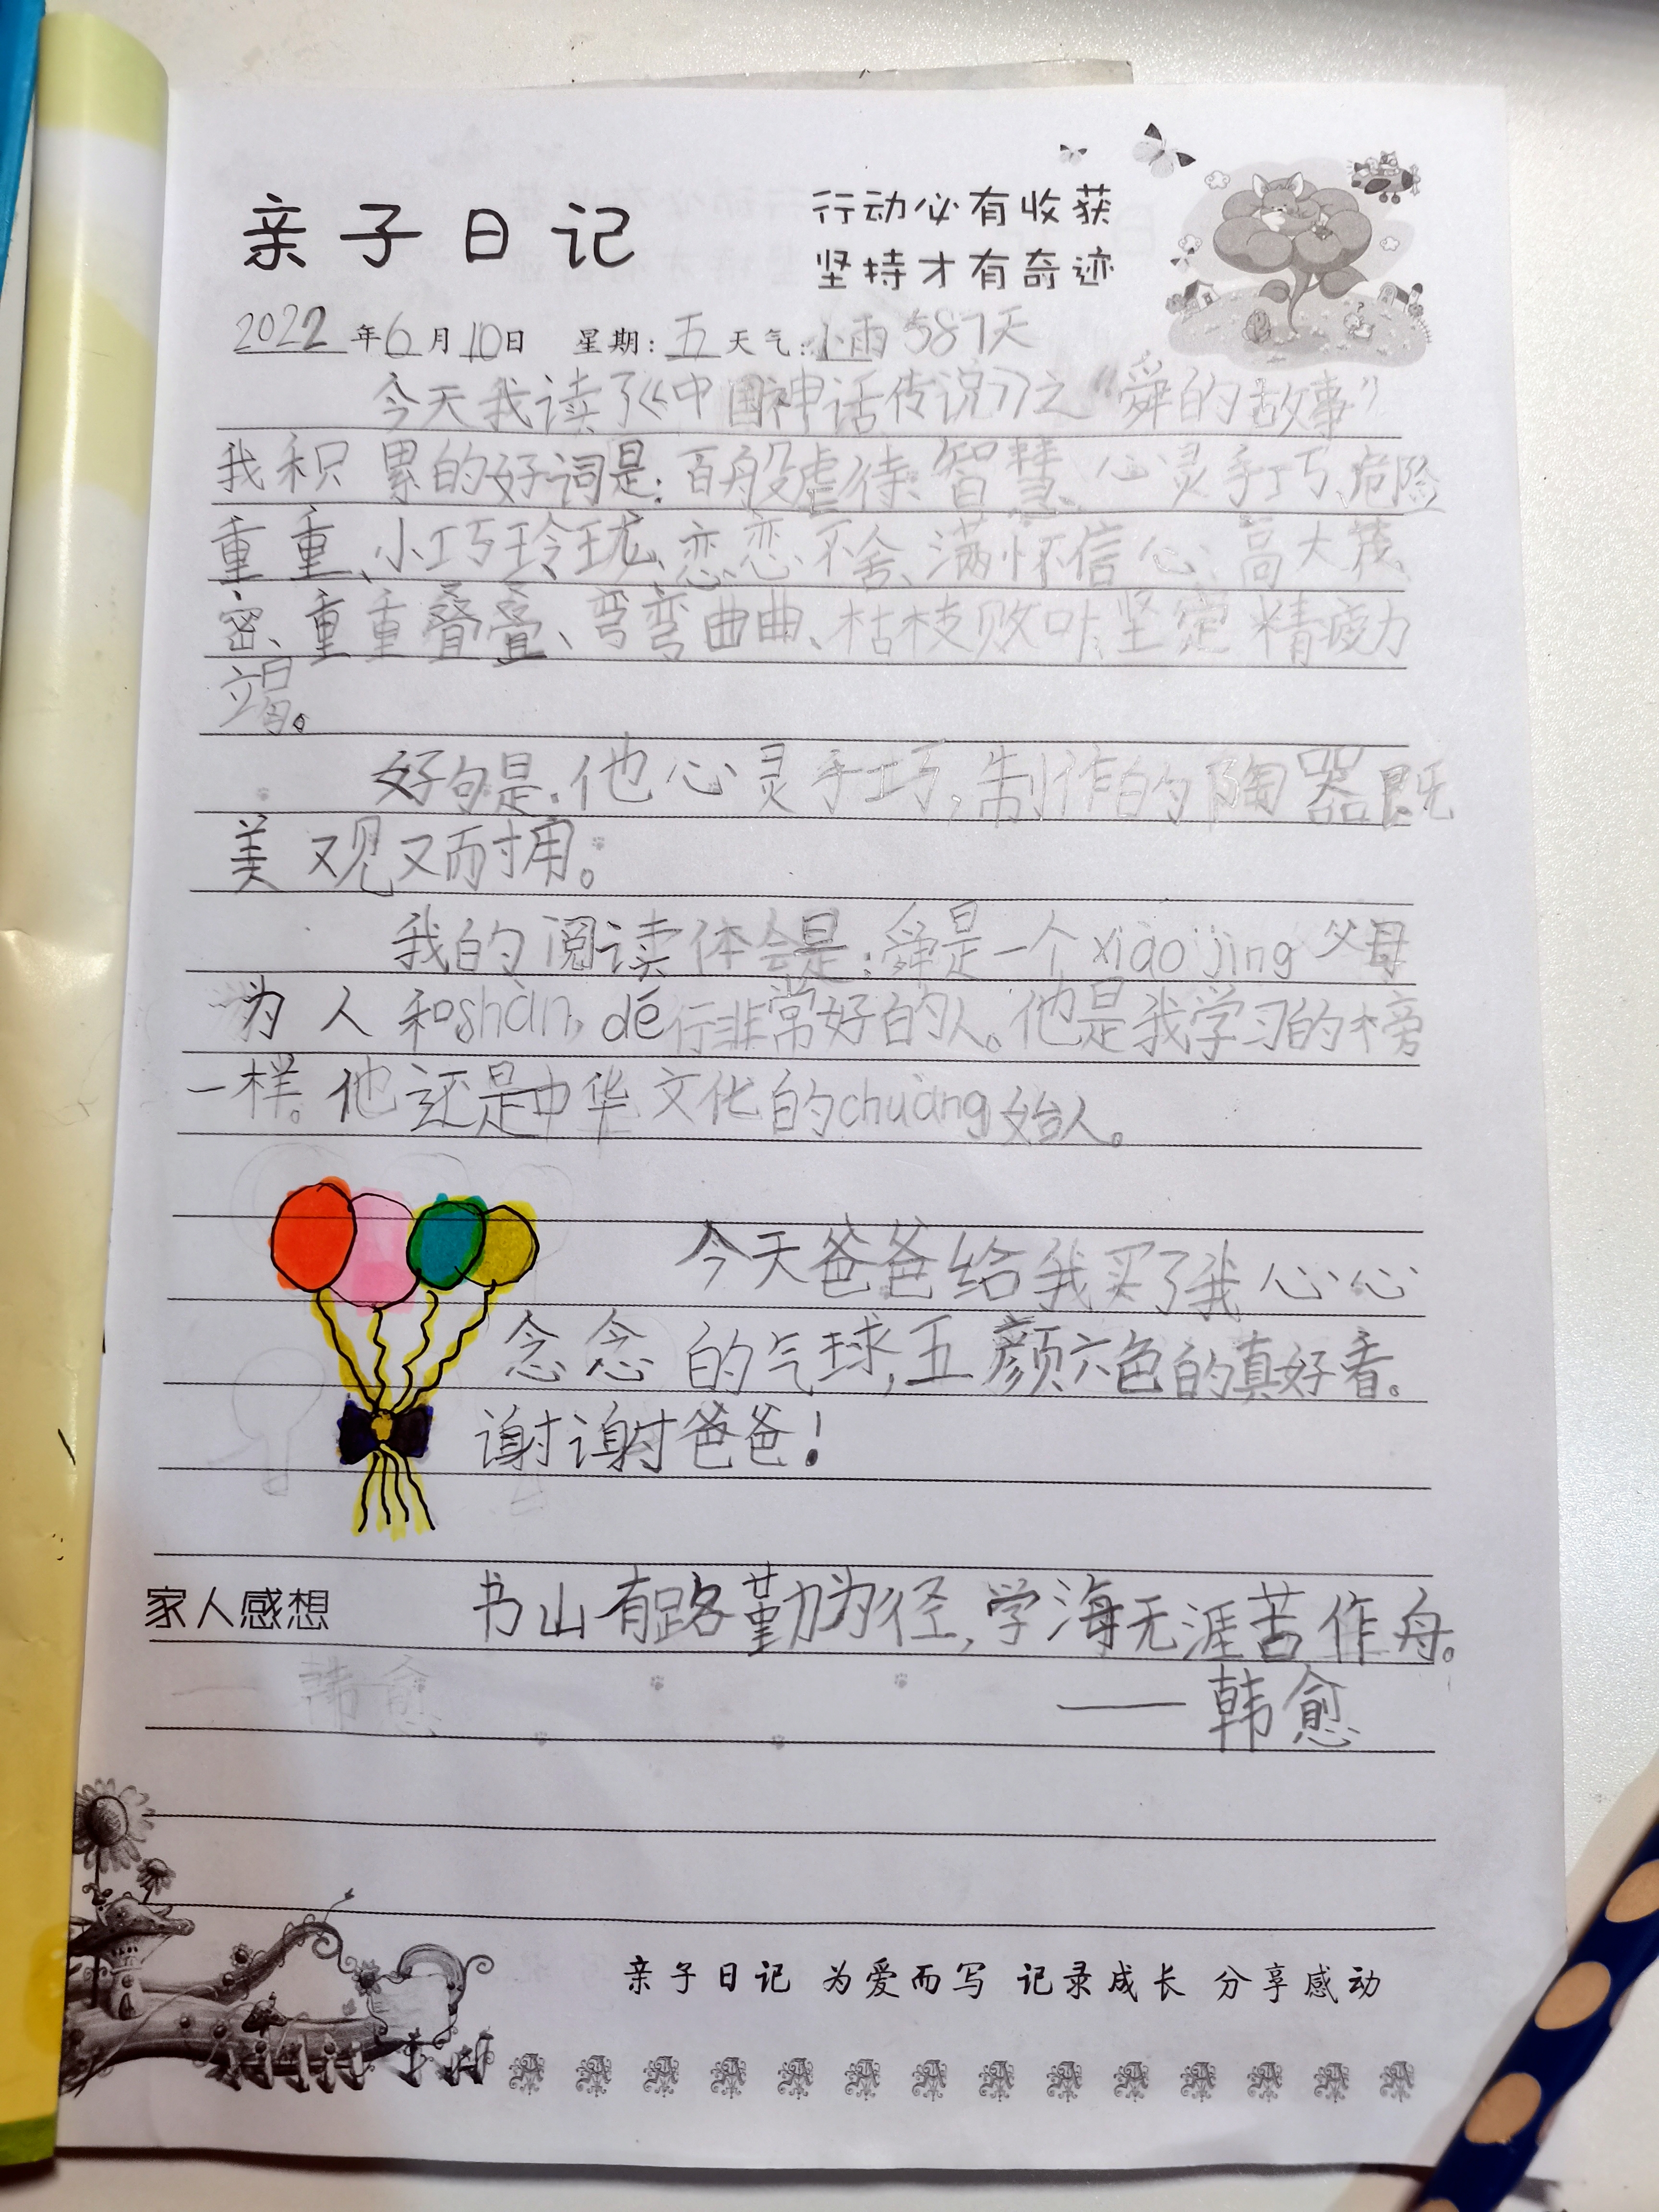 亲子日记
行动必有收获
坚持才有奇迹
2022年6月10日 星期:五 天气:小雨 587天
今天我读了《中国神话传说》之“舜的故事”
我积累的好词是:百般虐待、智慧、心灵手巧、危险
重重、小巧玲珑、恋恋不舍、满怀信心、高大茂
密、重重叠叠、弯弯曲曲、枯枝败叶、坚定、精疲力
竭。
好句是:他心灵手巧,制作的陶器既
美观又耐用。
我的阅读体会是:舜是一个xiào jìng父母
为人和shàn, dé行非常好的人。他是我学习的榜
一样。他还是中华文化的chuàng始人。
今天爸爸给我买了我心心
念念的气球,五颜六色的真好看。
谢谢爸爸!
家人感想 书山有路勤为径,学海无涯苦作舟。
——韩愈
亲子日记 为爱而写 记录成长 分享感动